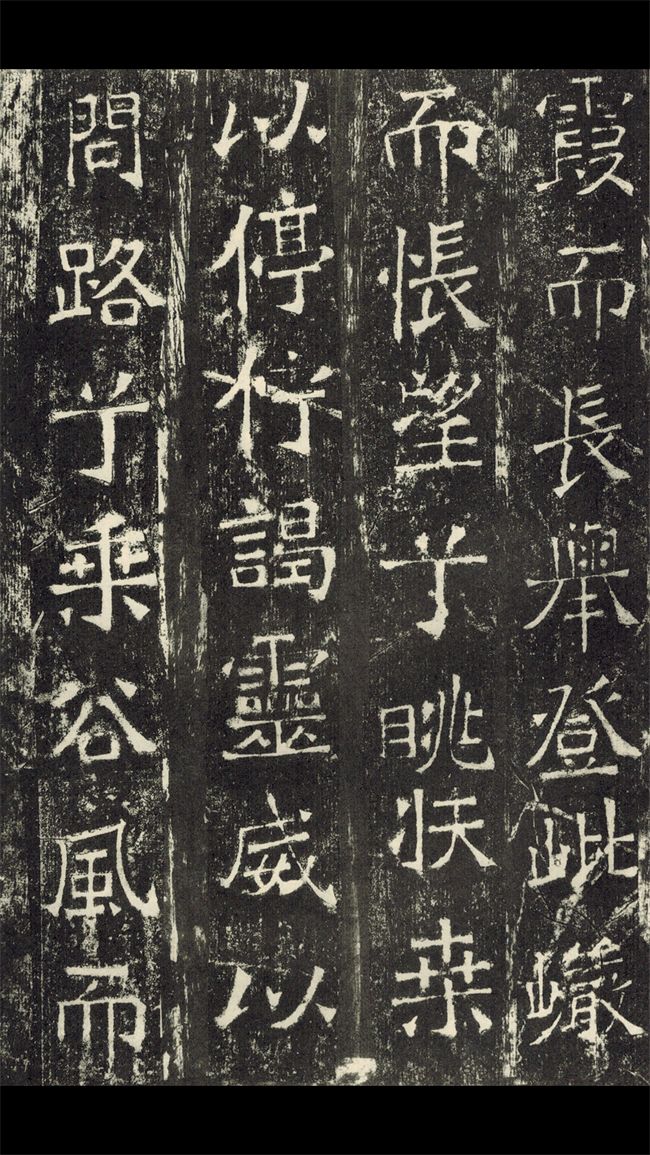 霞而長舉登
而悵望兮眺扶桒
以停佇謁靈威以
問路兮乘谷風而